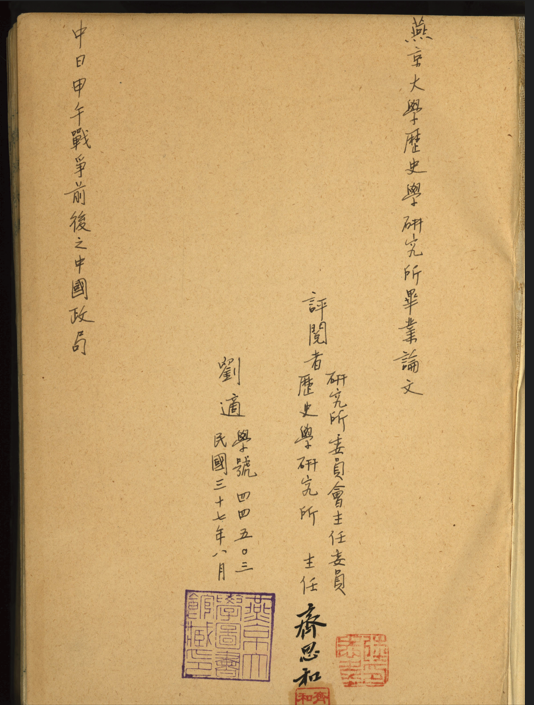 燕京大學歷史學研究所畢業論文
研究所委員會主任委員
評閱者歷史學研究所 主任 齊思和
學號 四四五〇三
劉適 民國三十七年八月
中日甲午戰爭前後之中國政局
燕京大
學圖書
館藏印